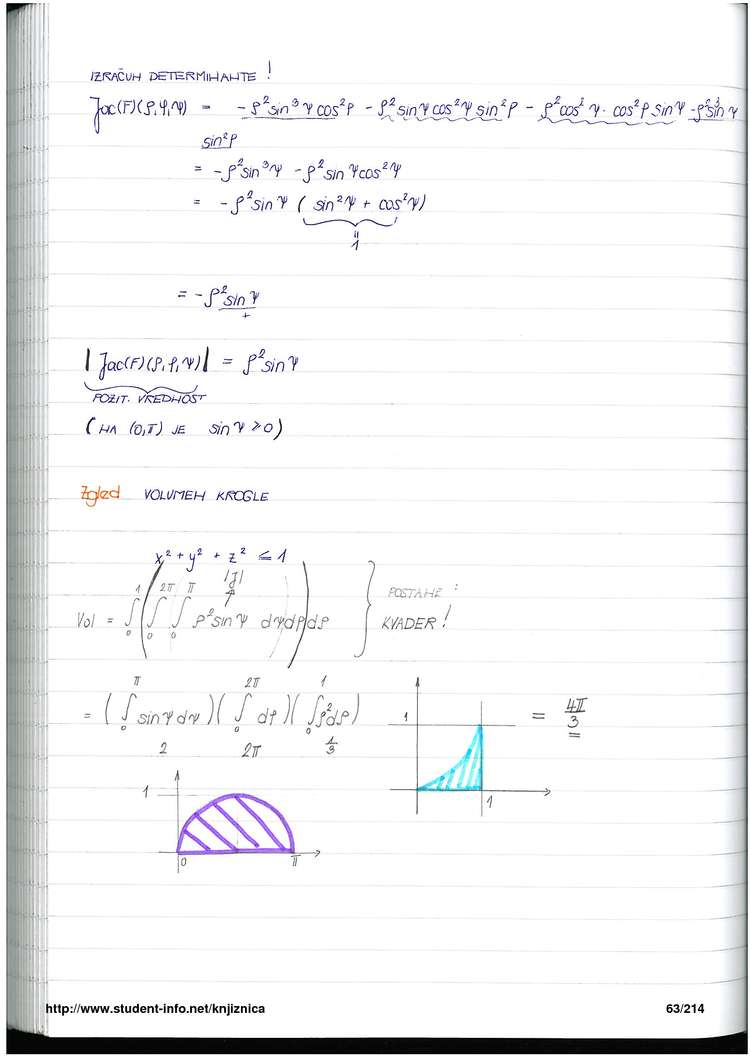 IZRAČUN DETERMINANTE !
Jac(F)(ρ,φ,ψ) = -ρ²sin³ψcos²φ - ρ²sinψcos²ψsin²φ - ρ²cos²ψ·cos²φ sinψ - ρ²sin³ψ
sin²φ
= -ρ²sin³ψ - ρ²sinψcos²ψ
= -ρ²sinψ ( sin²ψ + cos²ψ)
"
1
= -ρ²sinψ
+
|Jac(F)(ρ,φ,ψ)| = ρ²sinψ
POZIT. VREDNOST
(NA (0,π) JE sinψ ≥ 0)
Zgled VOLUMEN KROGLE
x² + y² + z² ≤ 1
|J|
↑
Vol = ∫₀¹(∫₀²π ∫₀π ρ²sinψ dψdφ)dρ } POSTANE :
KVADER !
= (∫₀π sinψ dψ)(∫₀²π dφ)(∫₀¹ρ²dρ) = 4π/3
2 2π 1/3
1
1
1
0 π
http://www.student-info.net/knjiznica 63/214